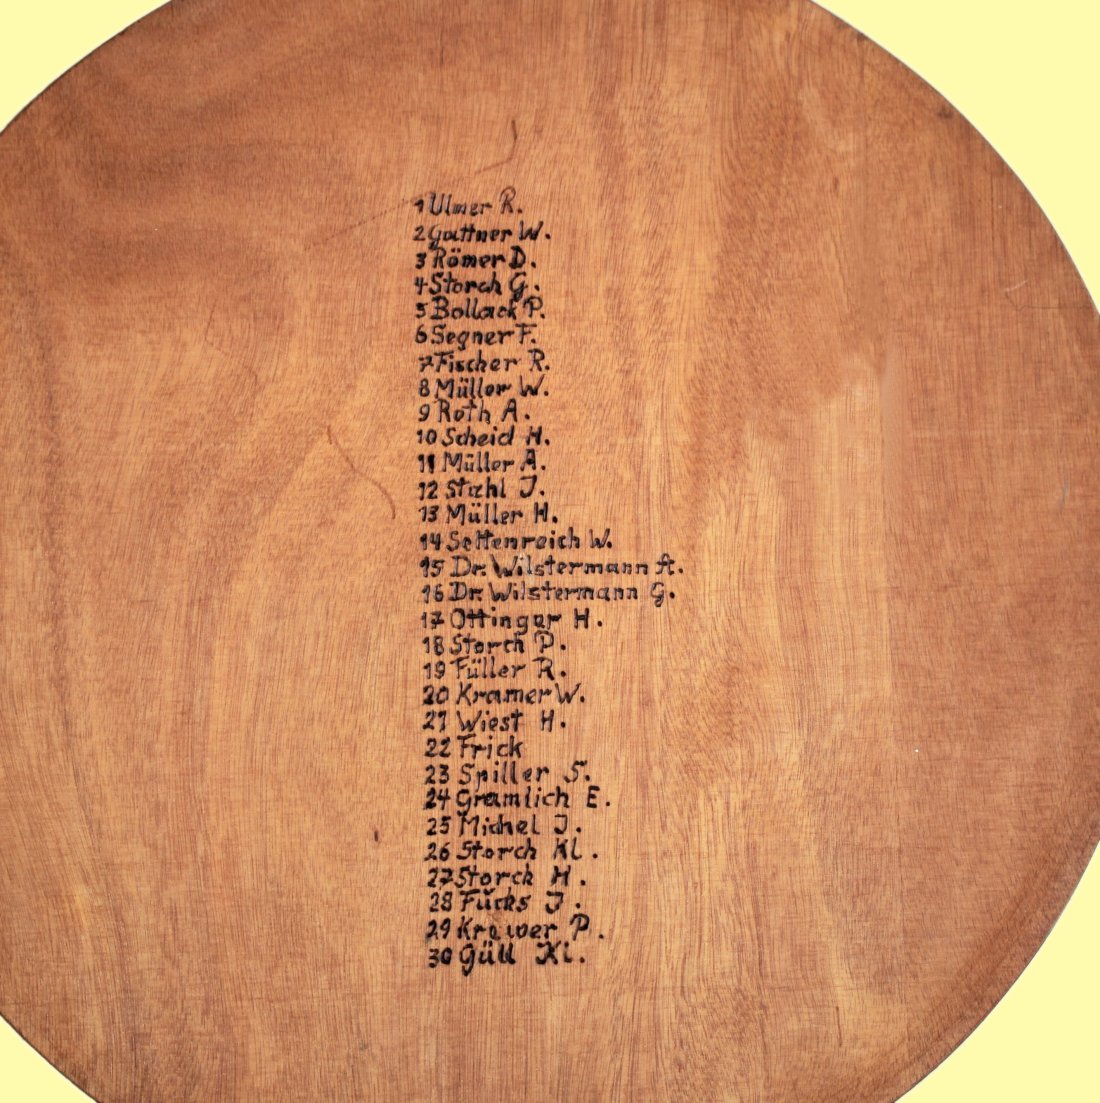 1 Ulmer R.
2 Gattner W.
3 Römer D.
4 Storch G.
5 Bollack P.
6 Segner F.
7 Fischer R.
8 Müller W.
9 Roth A.
10 Scheid H.
11 Müller A.
12 Stahl J.
13 Müller H.
14 Settenreich W.
15 Dr. Wilstermann A.
16 Dr. Wilstermann G.
17 Ottinger H.
18 Storch P.
19 Füller R.
20 Kramer W.
21 Wiest H.
22 Frick
23 Spiller S.
24 Gramlich E.
25 Michel J.
26 Storch Kl.
27 Storck H.
28 Fuchs J.
29 Krawer P.
30 Güll Kl.